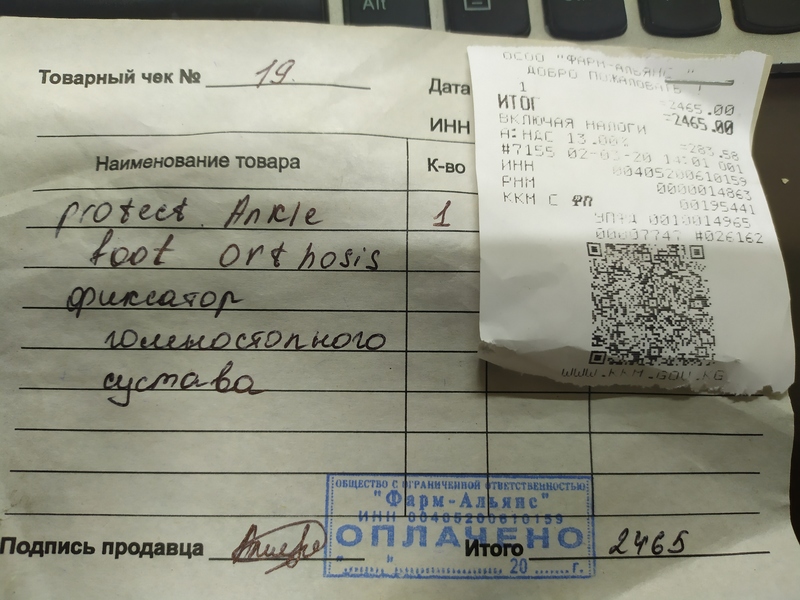 Alt
Товарный чек № 19.
Дата
ИНН
Наименование товара
К-во
protect Ankle
1
foot orthosis
фиксатор
голеностопного
сустава
ОБЩЕСТВО С ОГРАНИЧЕННОЙ ОТВЕТСТВЕННОСТЬЮ
"Фарм-Альянс"
ИНН 00405200610159
ОПЛАЧЕНО
20 ....... г.
Подпись продавца
Итого 2465
ОСОО "ФАРМ-АЛЬЯНС"
ДОБРО ПОЖАЛОВАТЬ
1
=2465.00
ИТОГ =2465.00
ВКЛЮЧАЯ НАЛОГИ
А: НДС 13.00% =283.58
#7155 02-03-20 14:01 001
ИНН 00405200610159
РНМ 0000014863
ККМ С ФП 00195441
УПТД 0010014965
00007747 #026162
WWW.KKM.GOV.KG